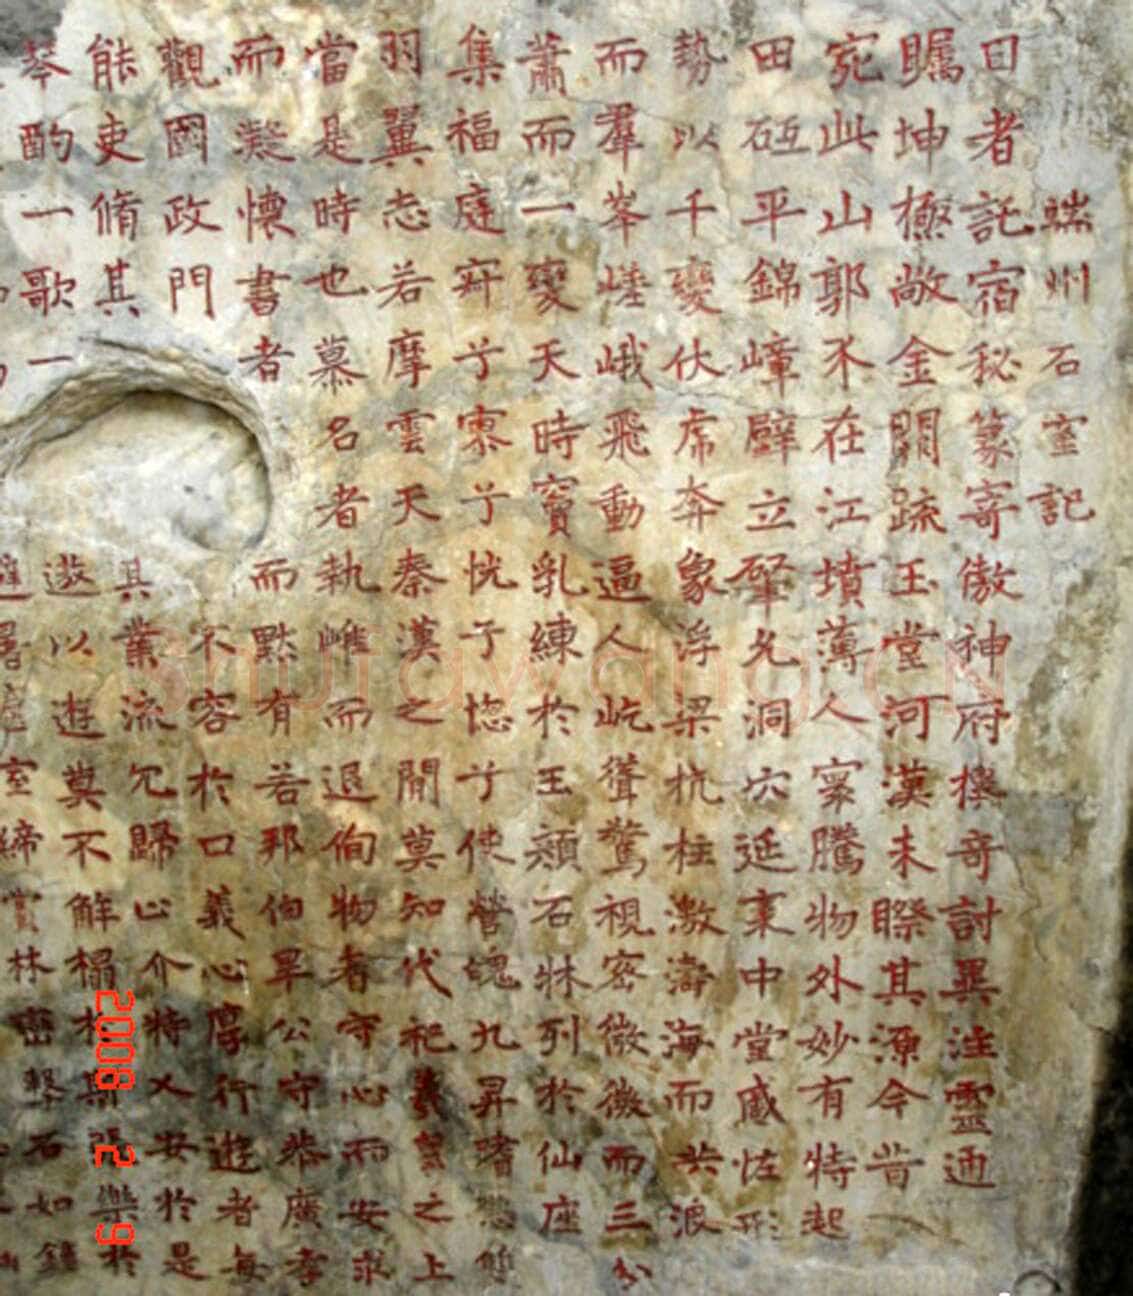 端州石室記
日者託宿秘篆寄傲神府檢奇討異注靈西
矚坤極敞金闕疏玉堂河漢未睽其源今昔
宛此山郭不在江墳薄人寰騰物外妙有特起
田砥平錦嶂壁立肇允洞穴延袤中堂感怪形
勢以千變伏虎奔象浮梁杭柱激濤海而共浪
而羣峯嵯峨飛動逼人屹聳驚視密微微而三分
蕭而一變天時竇乳練於玉顏石牀列於仙座
集福庭窅兮寥兮恍兮惚兮使營魄九昇嗜慾
羽翼志若摩雲天秦漢之間莫知代祀羲之上
當是時也慕名者執雌而退徇物者守心而安求
而歎懷書者而默有若邦伯畢公守恭廣孝
觀國政門不容於口義心厚行遊者每
能吏脩其其業流冗歸止介特乂安於是
琴酌一歌一遊以遊莫不解榻於張樂於
室締賞林密磐石如鏡
shufawang.cn
2008 2 9